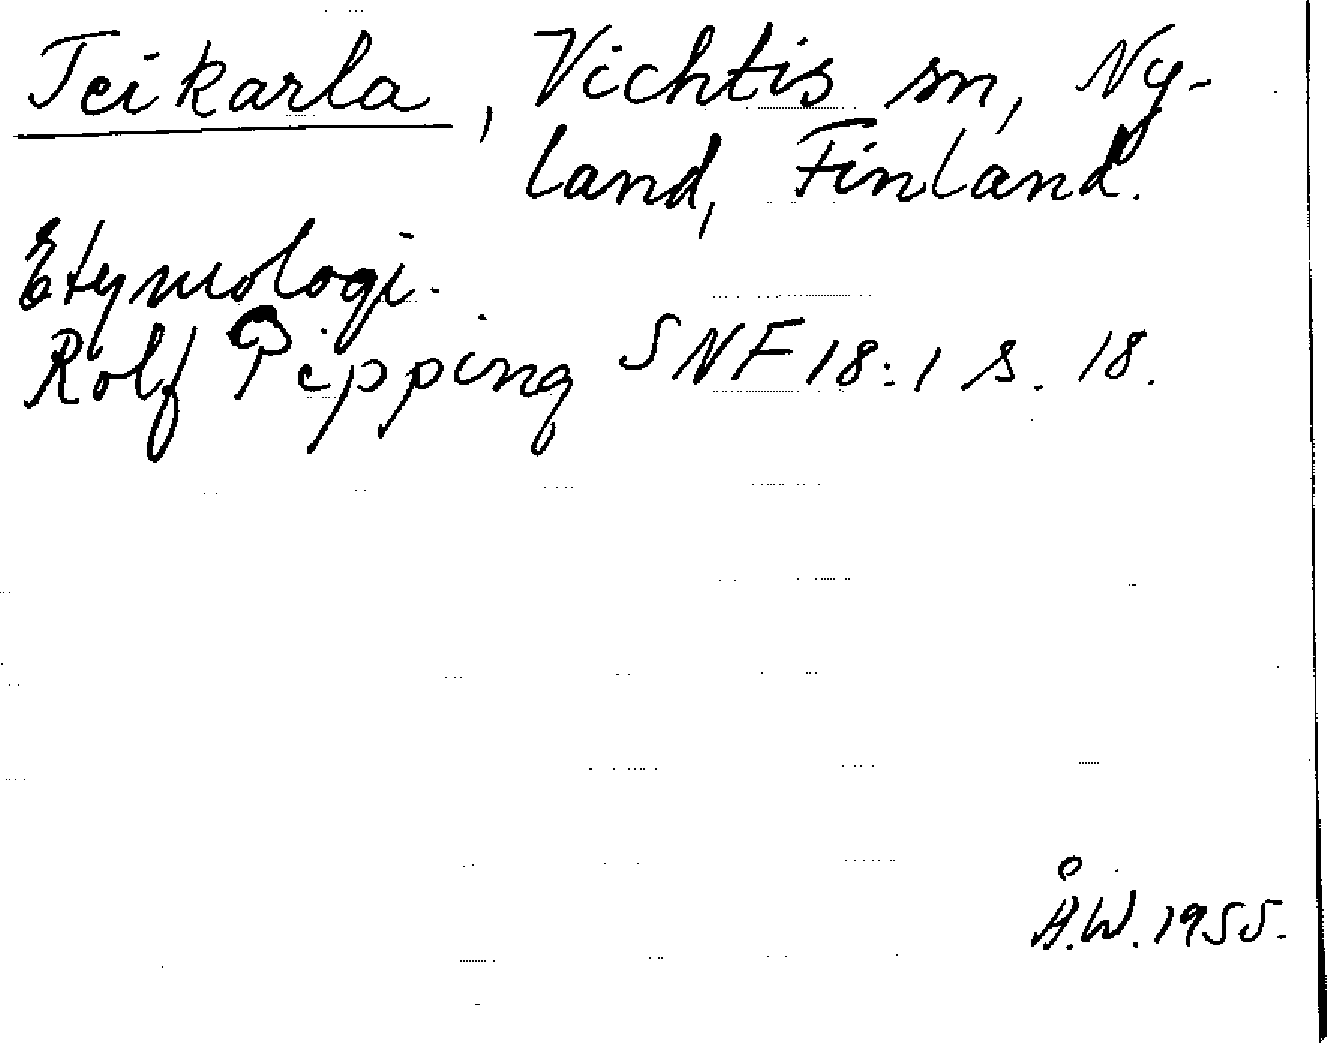 Teikarla, Vichtis sn, Ny-
land, Finland.
Etymologi.
Rolf Pipping SNF 18:1 s. 18.
Å.W. 1955.